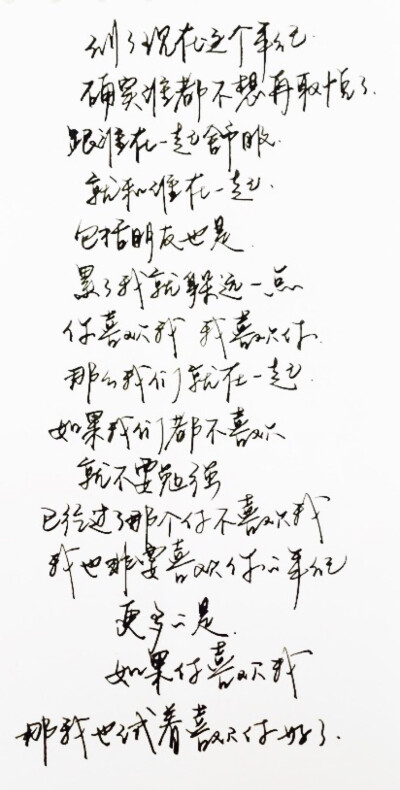 到了现在这个年纪
确实谁都不想再取悦了
跟谁在一起舒服
就和谁在一起
包括朋友也是
累了我就躲远一点
你喜欢我 我喜欢你
那么我们就在一起
如果我们都不喜欢
就不要勉强
已经过了那个你不喜欢我
我也非要喜欢你的年纪
更多的是
如果你喜欢我
那我也试着喜欢你好了